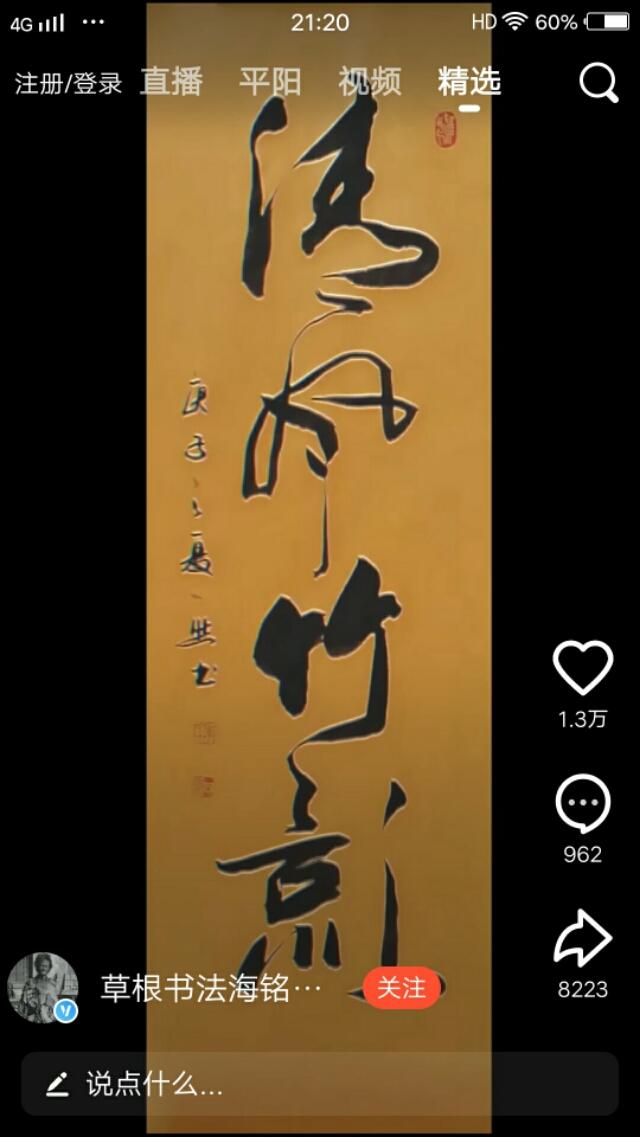 4G
21:20
HD
60%
注册/登录 直播 平阳 视频 精选
清风竹影
庚子之夏
书
1.3万
962
8223
草根书法海铭…
关注
说点什么...